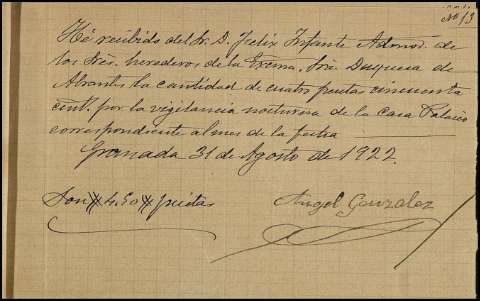 Nº 13
He recibido del Sr. D. Felix Infante Admor. de
los Sres. herederos de la Excma. Sra. Duquesa de
Abrantes la cantidad de cuatro pesetas cincuenta
cent. por la vigilancia nocturna de la Casa Palacio
correspondiente al mes de la fecha
Granada 31 de Agosto de 1922.
Son # 4,50 # pesetas
Angel Gonzalez